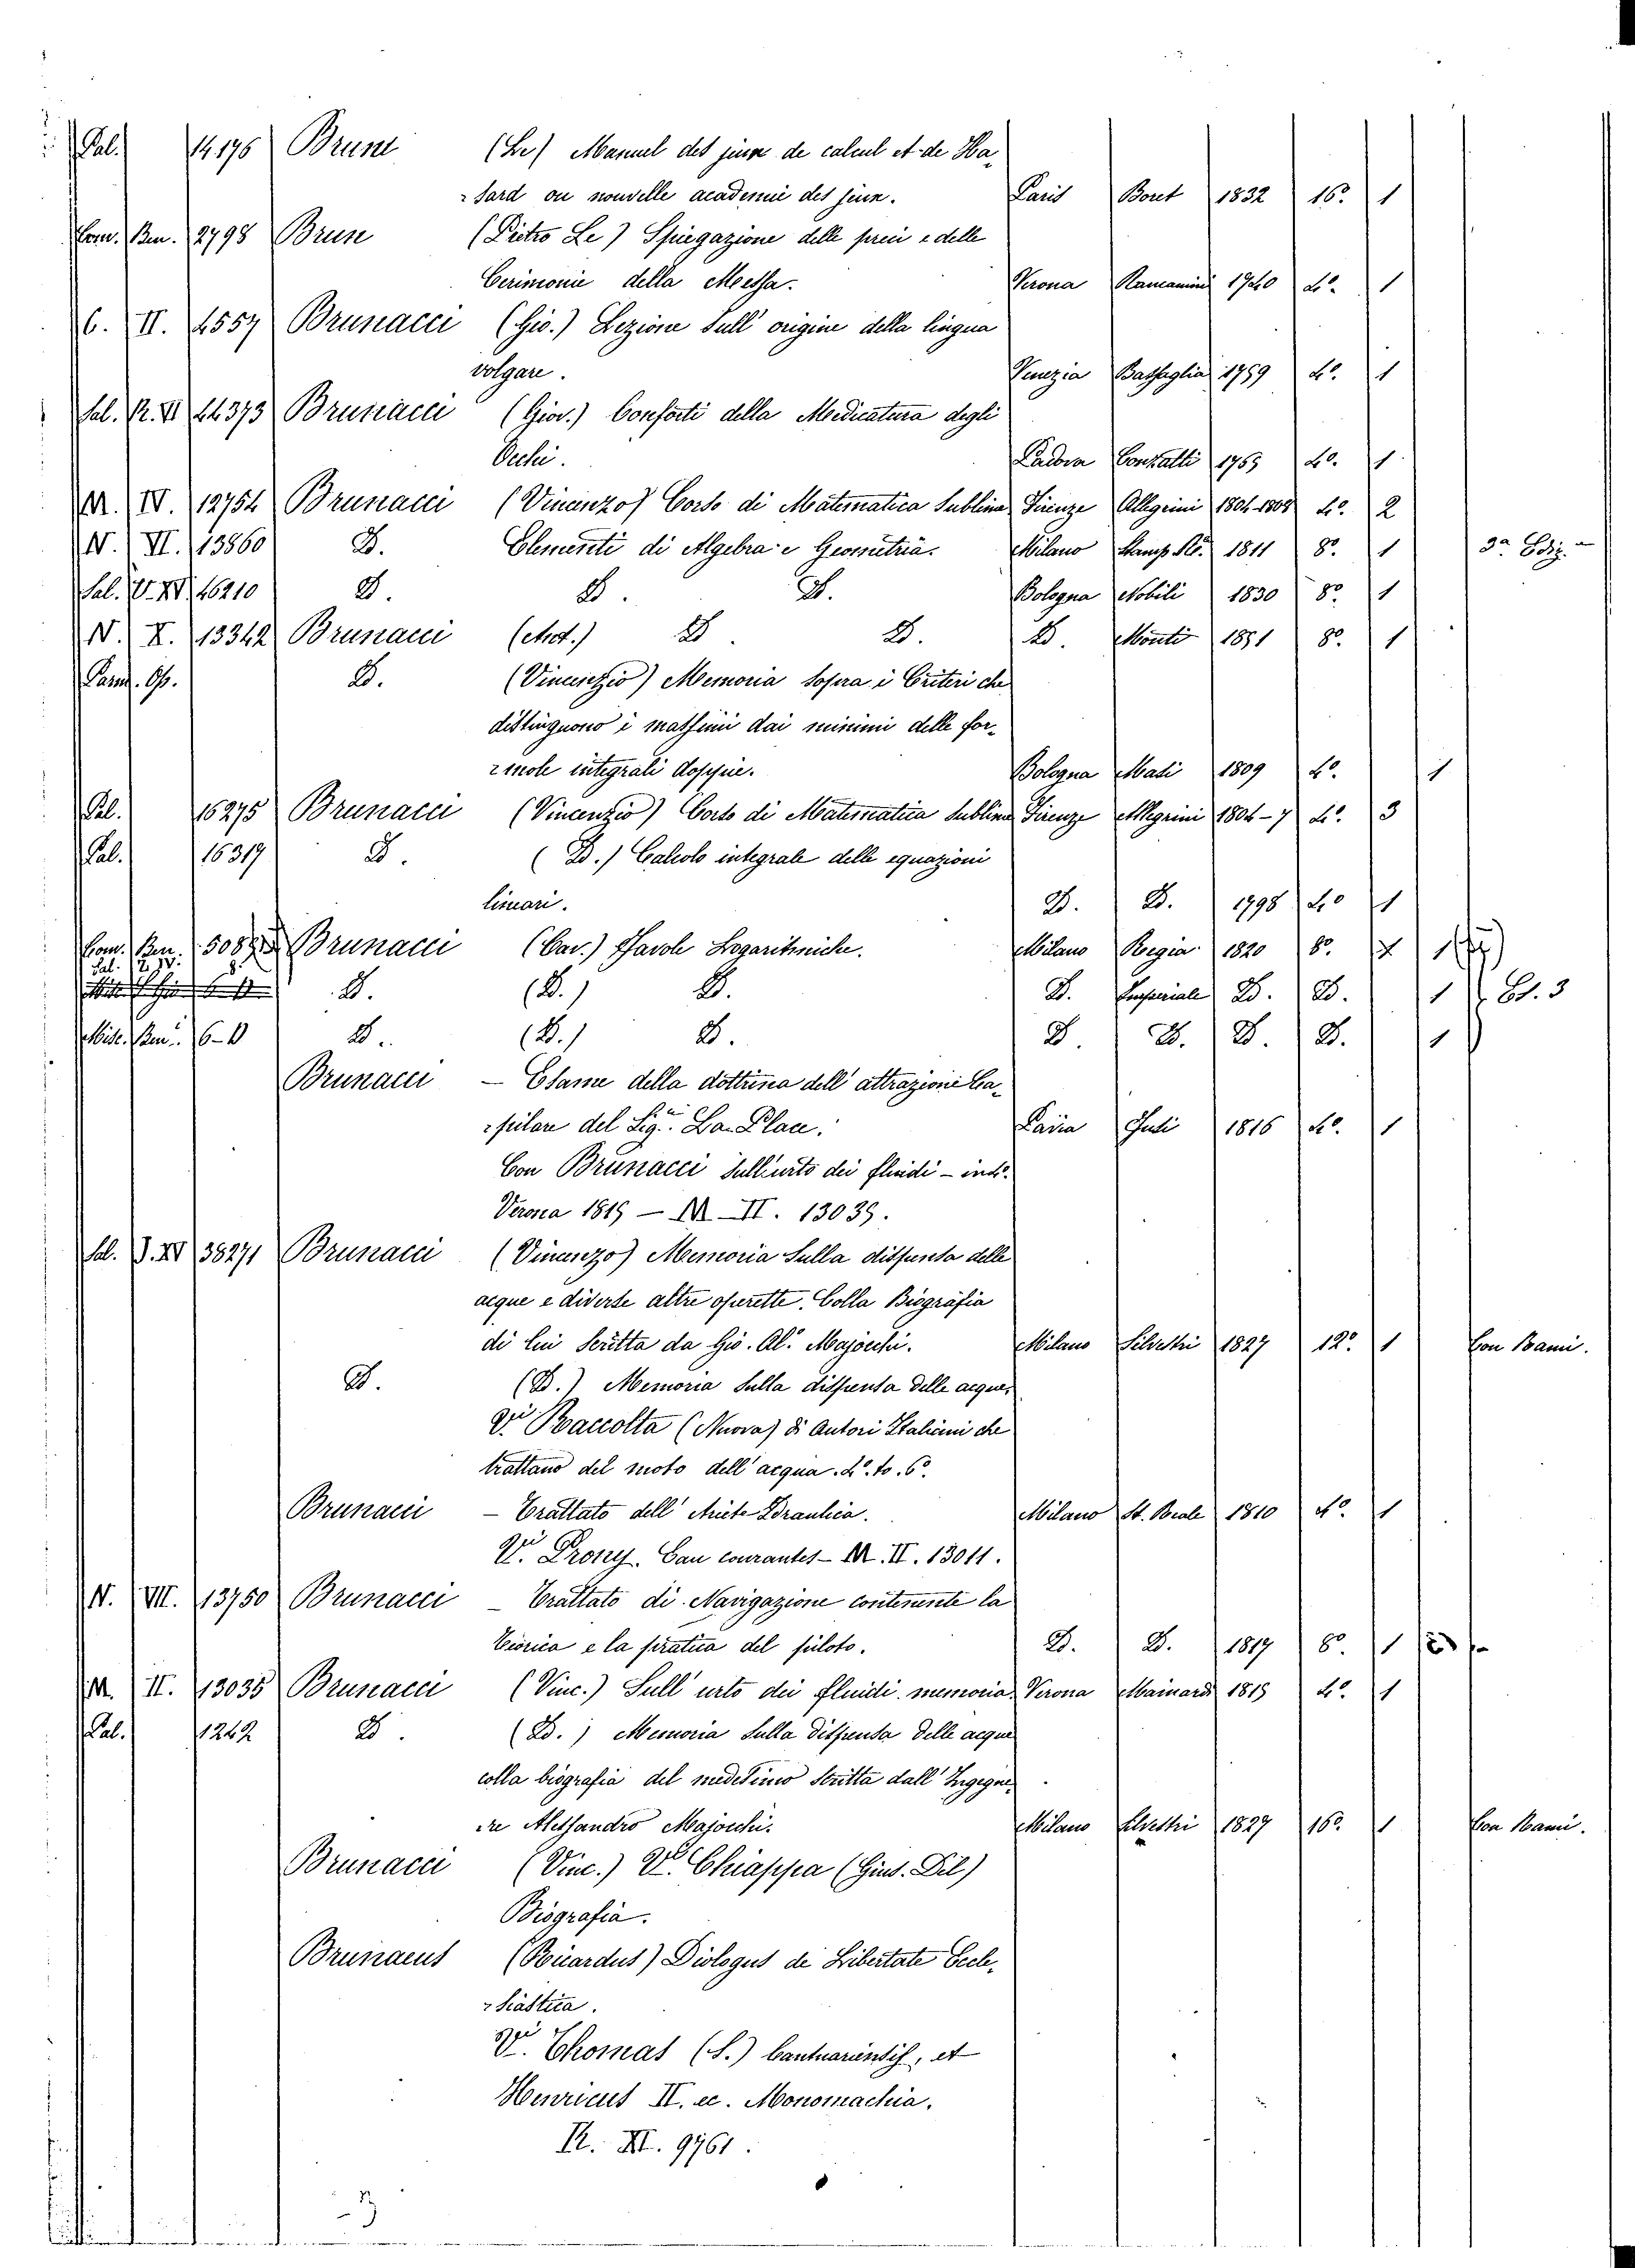 Pal. 14196 Brune (Le) Manuel des jeux de calcul et de Ha¬
sard ou nouvelle academie des jeux. Paris Boret 1832 16º 1
Com. Ben. 2798 Brun (Pietro Le) Spiegazione delle preci e delle
Cerimonie della Messa. Verona Ramanzini 1740 4º 1
C. II. 4557 Brunacci (Gio.) Lezione sull' origine della lingua
volgare. Venezia Bassaglia 1759 4º 1
Sal. R. II 44373 Brunacci (Giov.) Conforti della Medicatura degli
Occhi. Padova Conzatti 1765 4º. 1
M. IV. 12754 Brunacci (Vincenzo) Corso di Matematica Sublime Firenze Allegrini 1804-1808 4º. 2
N. VI. 13860 D. Elementi di Algebra e Geometria. Milano Stamp. Re. 1811 8º. 1 3ª Ediz.
Sal. V. XV. 46210 D. D. D. Bologna Nobili 1830 8º 1
N. X. 13342 Brunacci (Ant.) D. D. D. Monti 1851 8º. 1
Pamd. Op. D. (Vincenzio) Memoria sopra i Criteri che
distinguono i massimi dai minimi delle for¬
mole integrali doppie. Bologna Masi 1809 4º. 1
Pal. 16275 Brunacci (Vincenzio) Corso di Matematica sublime Firenze Allegrini 1804-7 4º. 3
Pal. 16319 D. (D.) Calcolo integrale delle equazioni
lineari. D. D. 1798 4º 1
Com. Ben. 5087 Brunacci (Cav.) Tavole Logaritmiche. Milano Regia 1820 8º. 1
D. (D.) D. D. Imperiale D. D. 1 Es. 3
Mise. Ben. 6-D D. (D.) D. D. D. D. D. 1
Brunacci — Esame della dottrina dell' attrazione Ca¬
pilare del Sig.r La Place. Pavia Fusi 1816 4º. 1
Con Brunacci sull'urto dei fluidi - ind.
Verona 1819 — M—II. 13039.
Sal. J. XV 38271 Brunacci (Vincenzo) Memoria sulla dispensa delle
acque e diverse altre operette. Colla Biografia
di lui scritta da Gio. Al. Majocchi. Milano Silvestri 1827 12º. 1 Con Rami.
D. (D.) Memoria sulla dispensa delle acque.
Vi Raccolta (Nuova) di Autori Italiani che
trattano del moto dell' acqua. 4º. to. 6º.
Brunacci — Trattato dell' Ariete Idraulica. Milano St. Reale 1810 4º. 1
Vi. Prony. Eau courantes — M. II. 13011.
N. VII. 13750 Brunacci — Trattato di Navigazione contenente la
Teorica e la pratica del piloto. D. D. 1817 8º. 1
M. II. 13035 Brunacci (Vinc.) Sull' urto dei fluidi memoria. Verona Mainardi 1819 4º. 1
Pal. 1242 D. (D.) Memoria sulla dispensa delle acque
colla biografia del medesimo scritta dall' Ingegne¬
re Alessandro Majocchi. Milano Silvestri 1827 16º. 1 Con Rami.
Brunacci (Vinc.) Vi. Chiappa (Gius. Del)
Biografia.
Brunaeus (Ricardus) Diologus de Libertate Eccle¬
siastica.
Vi. Thomas (S.) Cantuariensis, et
Henricus II. ec. Monomachia.
R. XI. 9761.